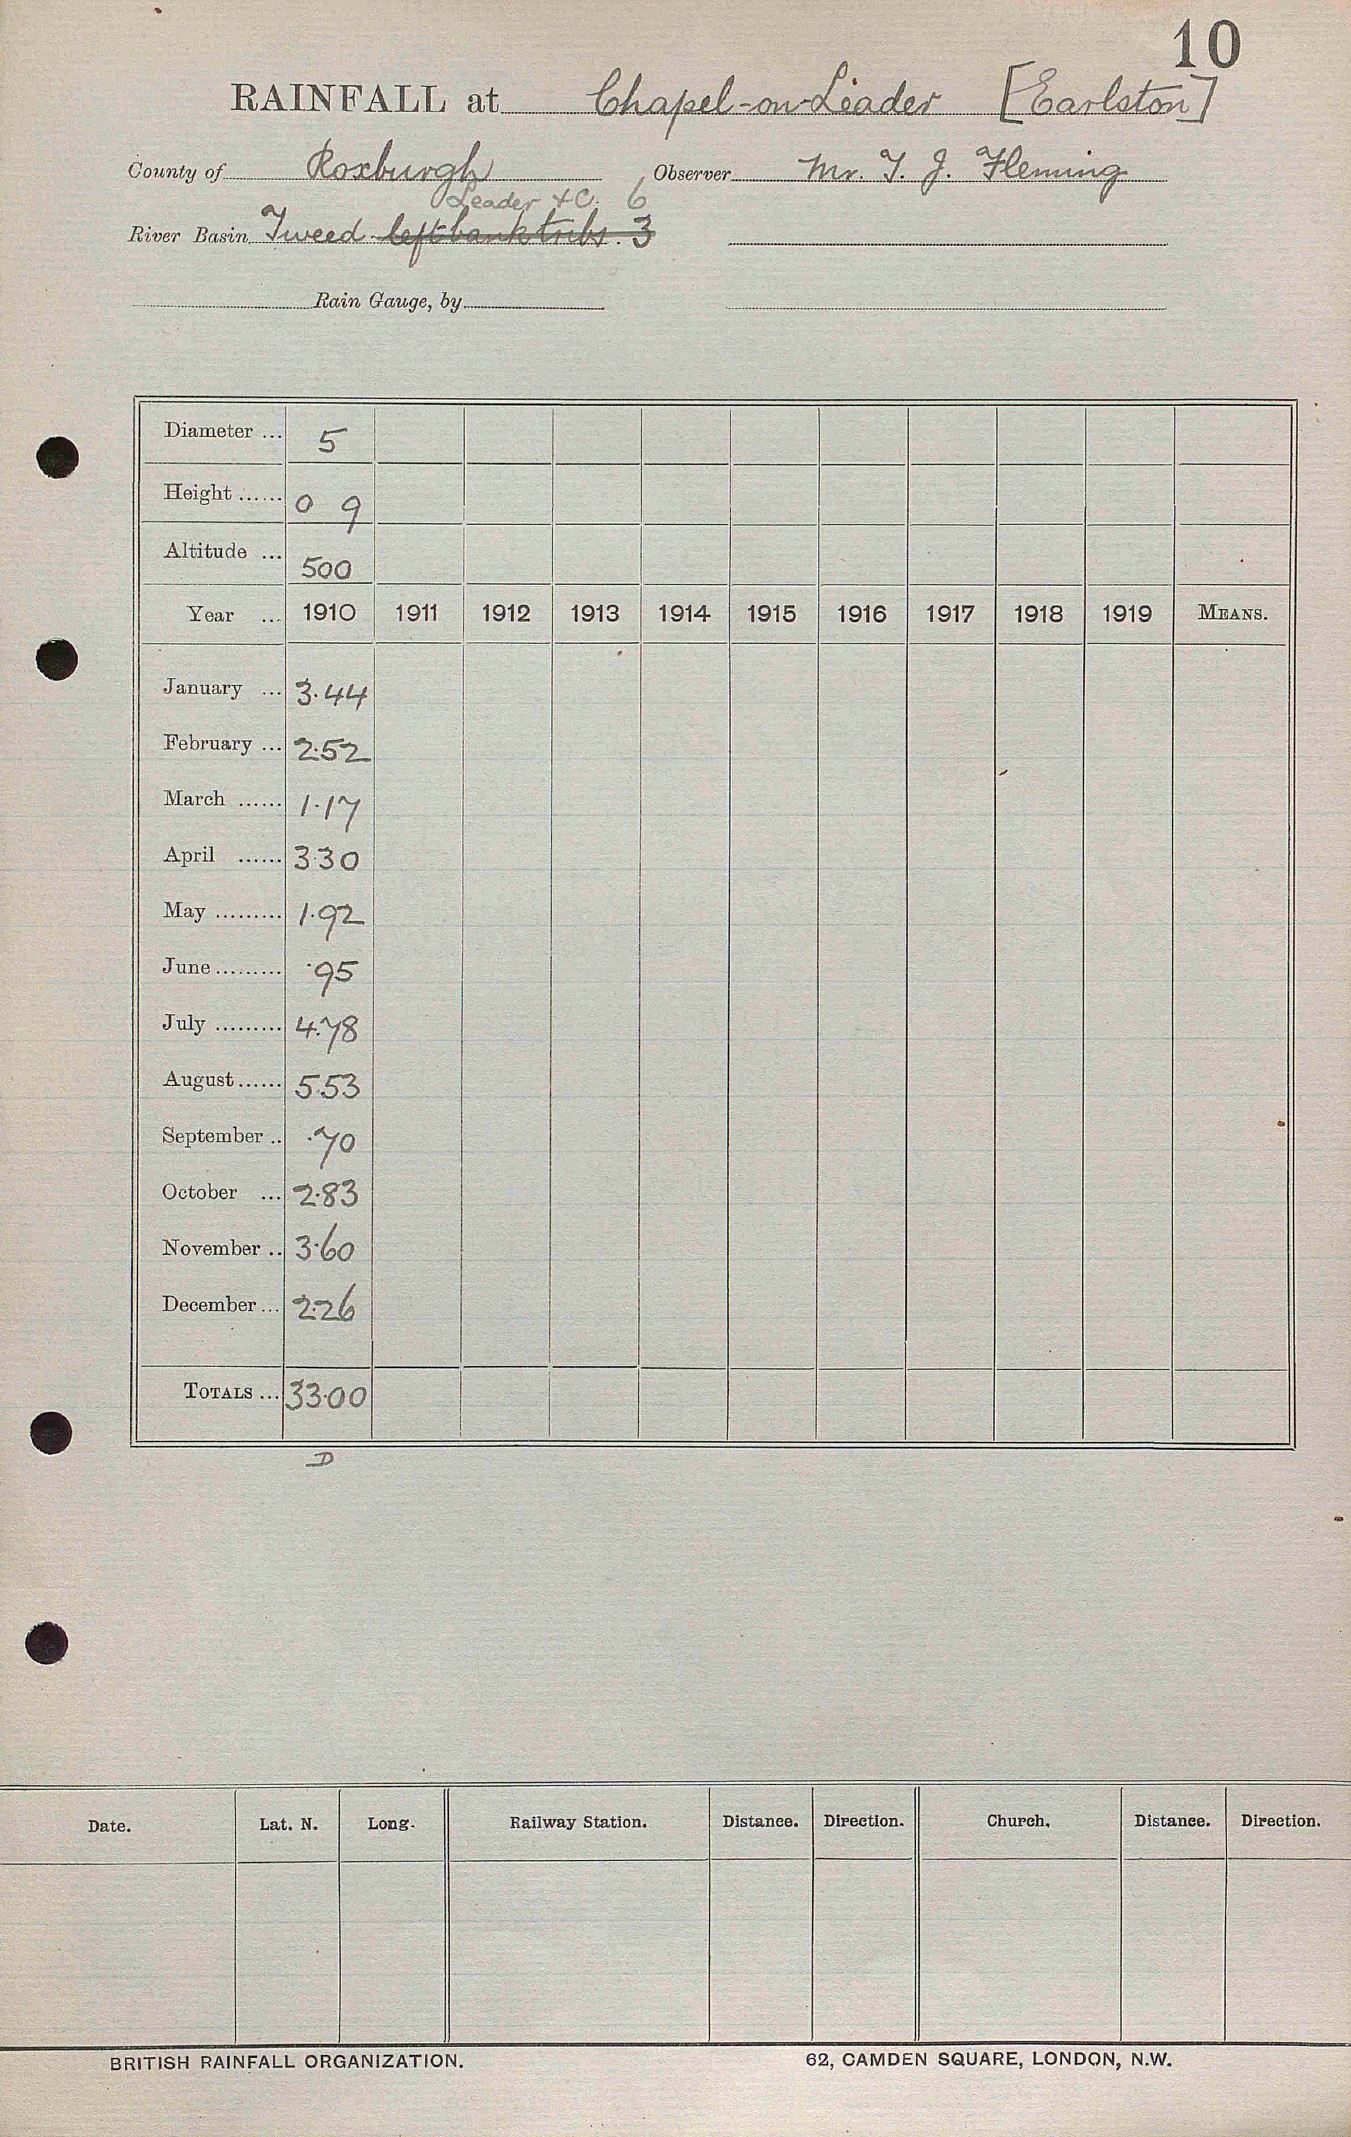 10
RAINFALL at Chapel-on-Leader [Earlston]
County of Roxburgh Observer Mr. T. J. Fleming
Leader &C. 6
River Basin Tweed left bank tribs. 3
Rain Gauge, by
Diameter ... 5
Height ...... 0 9
Altitude ... 500
Year ... 1910 1911 1912 1913 1914 1915 1916 1917 1918 1919 MEANS.
January ... 3.44
February ... 2.52
March ...... 1.17
April ...... 3.30
May ......... 1.92
June ......... .95
July ......... 4.78
August ...... 5.53
September .. .70
October ... 2.83
November .. 3.60
December ... 2.26
TOTALS ... 33.00
D
Date. Lat. N. Long. Railway Station. Distance. Direction. Church. Distance. Direction.
BRITISH RAINFALL ORGANIZATION. 62, CAMDEN SQUARE, LONDON, N.W.